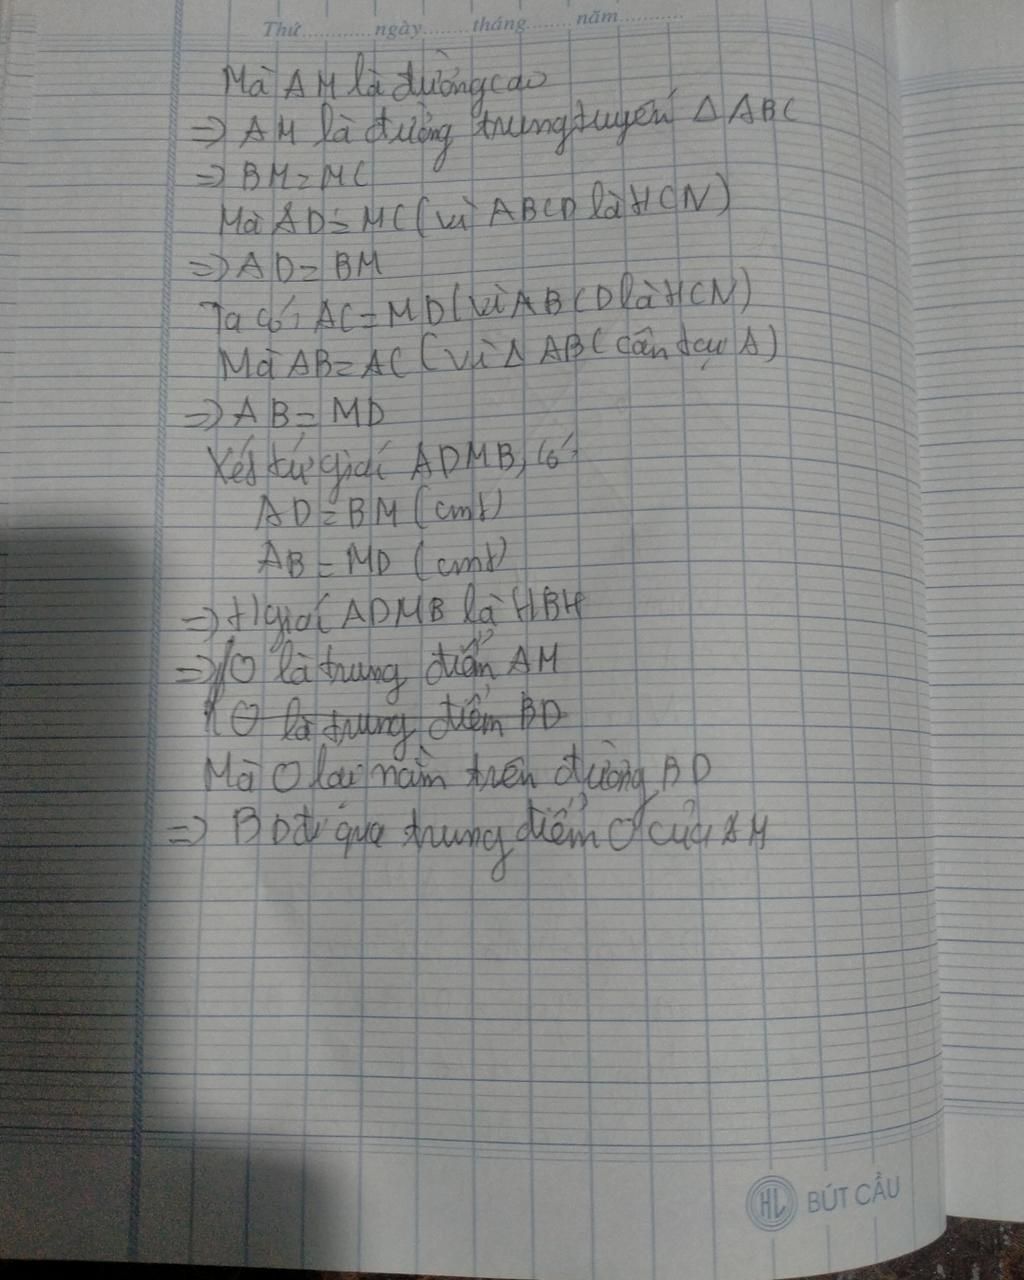 Thứ.......... ngày........ tháng....... năm..............
Mà AM là đường cao
=> AM là đường trung tuyến Δ ABC
=> BM = MC
Mà AD = MC (vì ABCD là HCN)
=> AD = BM
Ta có: AC = MD (vì ABCD là HCN)
Mà AB = AC (vì Δ ABC cân tại A)
=> AB = MD
Xét tứ giác ADMB, có:
AD = BM (cmt)
AB = MD (cmt)
=> t/giác ADMB là HBH
=> O là trung điểm AM
O là trung điểm BD
Mà O lại nằm trên đường BD
=> BD đi qua trung điểm O của AM
HL BÚT CẦU